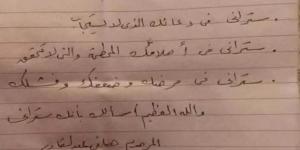 . ستراني في دعائك الذي لا يستجاب
. ستراني في أحلامك المحطمة والتي لا تتحقق
. ستراني في مرضك وضعفك وفشلك
والله العظيم أسالك بأنك ستراني
المرحوم